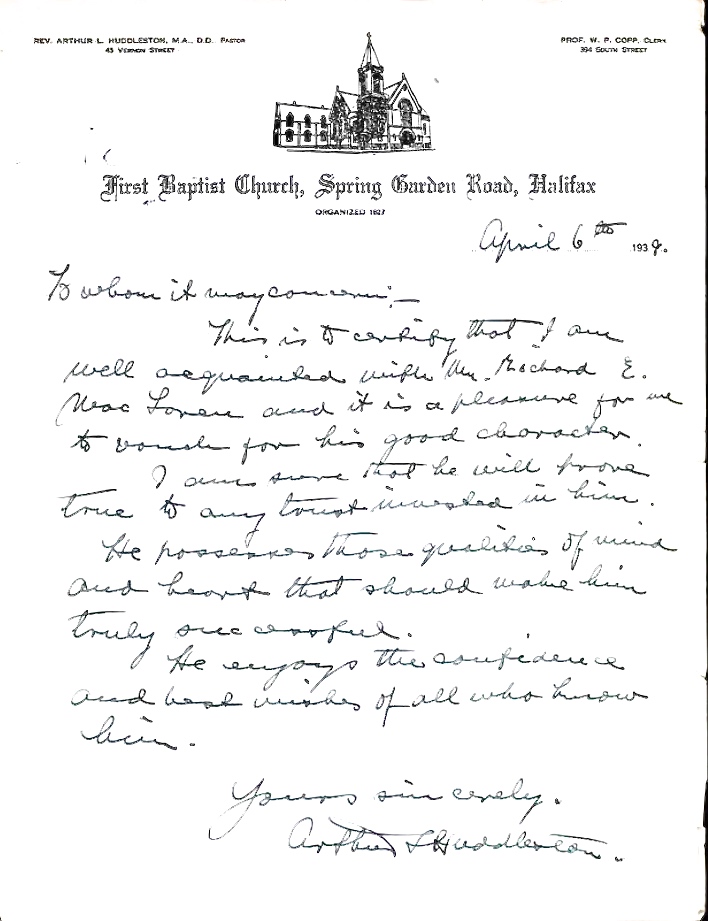 REV. ARTHUR L. HUDDLESTON, M.A., D.D. PASTOR
45 VERNON STREET
PROF. W. P. COPP, CLERK
394 SOUTH STREET
First Baptist Church, Spring Garden Road, Halifax
ORGANIZED 1827
April 6th 1939.
To whom it may concern:—
This is to certify that I am
well acquainted with Mr. Richard E.
Mac Loren and it is a pleasure for me
to vouch for his good character.
I am sure that he will prove
true to any trust invested in him.
He possesses those qualities of mind
and heart that should make him
truly successful.
He enjoys the confidence
and best wishes of all who know
him.
Yours sincerely.
Arthur L Huddleston.